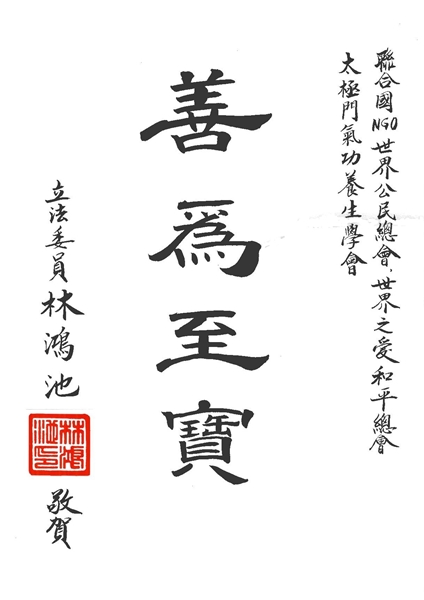 聯合國NGO世界公民總會、世界之愛和平總會
太極門氣功養生學會
善為至寶
立法委員林鴻池
林鴻池印
敬賀